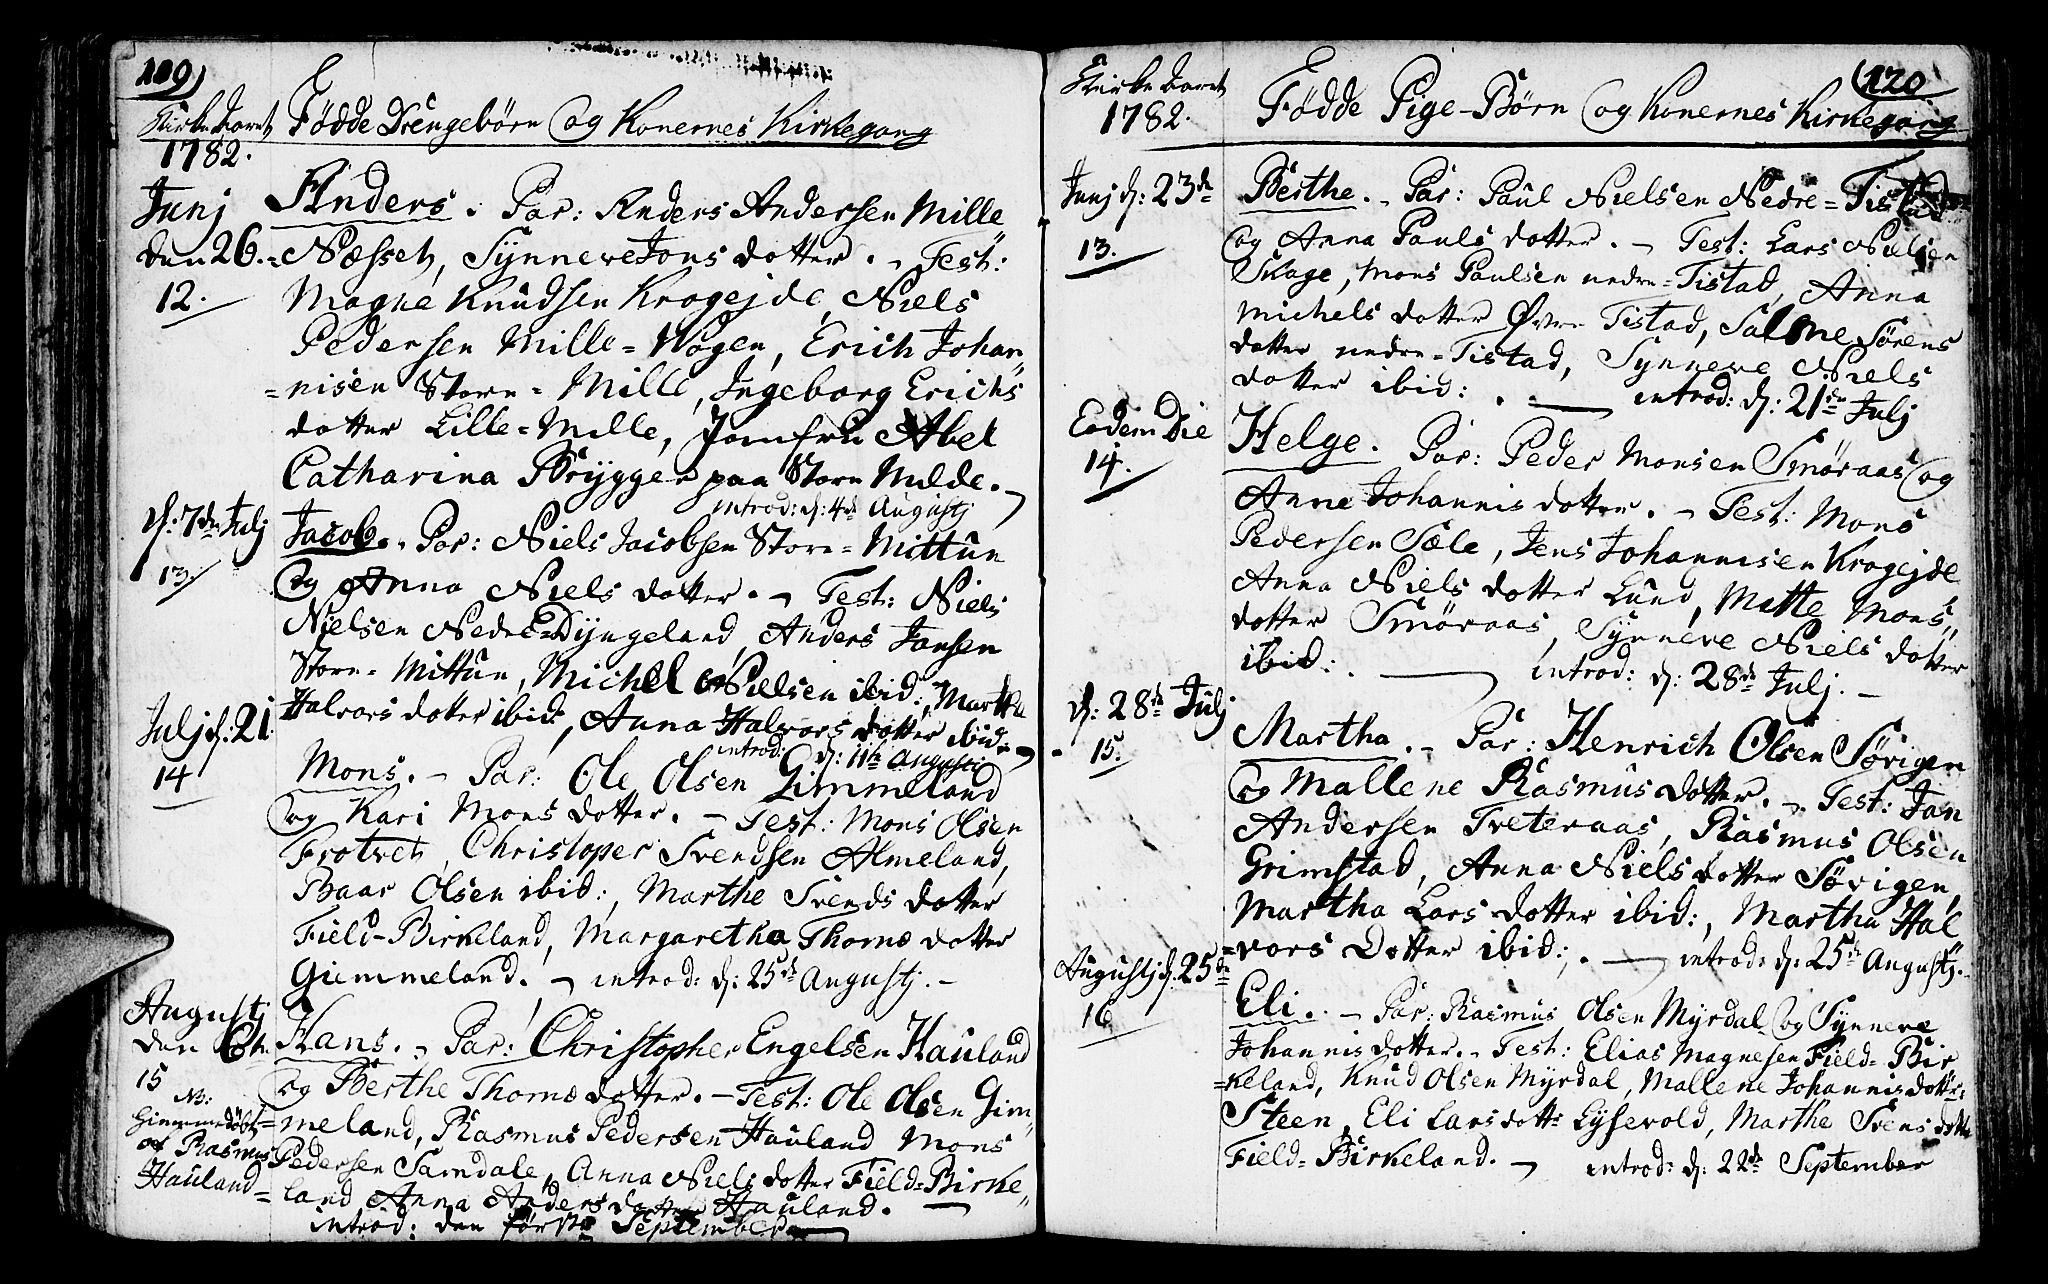 109)
Kirke Aaret Fødde Drengebörn og Konernes Kirkegang
1782.
Junj Anders. Par: Anders Andersen Mille
den 26. =Næsset, Synneve Jons dotter. - Test:
12. Magne Knudsen Kragejde, Niels
Pedersen Mille=Wogen, Erich Johan
=nisen Store=Mille, Ingeborg Erichs
dotter Lille=Mille, Jomfru Abel
Catharina Brygger paa Store Milde.
introd: d: 4de Augustj
d: 7de Julj Jacob. Par: Niels Jacobsen Store=Mittun
13. og Anna Niels dotter. - Test: Niels
Nielsen Nedre=Dyngeland, Anders Jansen
Store=Mittun, Michel Nielsen ibid:, Martha
Halvors dotter ibid:, Anna Halvors dotter ibid:
introd: d: 11te Augustj
Julj d: 21. Mons. - Par: Ole Olsen Gimmeland
14 og Kari Mons dotter. - Test: Mons Olsen
Frotvet, Christoper Svendsen Almeland,
Baar Olsen ibid:, Marthe Svends dotter
Field-Birkeland, Margaretha Thomæ dotter
Giemmeland. - introd: d: 25de Augustj. -
Augustj Hans. - Par: Christopher Engelsen Hauland
den 6te og Berthe Thomæ dotter. - Test: Ole Olsen Gim
15 =meland, Rasmus Pedersen Hauland Mons
NB: Pedersen Samdale, Anna Niels dotter Field=Birke
Hiemmedöbt land Anna Anders dotter Hauland.
af Rasmus
Hauland
introd: den första September
120
Kirke Aaret Fødde Pige-Börn og Konernes Kirkegang
1782.
Junj d: 23de Berthe. - Par: Paul Nielsen Nedre=Tistad
13. og Anna Pauls dotter. - Test: Lars Nielsen
Skage, Mons Paulsen nedre=Tistad, Anna
Michels dotter Øvre Tistad, Salome Sörens
dotter nedre=Tistad, Synneve Niels
dotter ibid: . introd: d: 21de Julj
Eodem Die Helge. Par: Peder Monsen Smøraas og
14. Anne Johannis dotter. - Test: Mons
Pedersen Sæle, Jens Johannisen Kragejde
Anna Niels dotter Lund, Mette Mons
dotter Smøraas, Synneve Niels dotter
ibid: . introd: d: 28de Julj. -
d: 28de Julj Martha. - Par: Henrich Olsen Sörigen
15. og Mallene Rasmus dotter. - Test: Jan
Andersen Treteraas, Rasmus Olsen
Grimstad, Anna Niels dotter Sövigen,
Martha Lars dotter ibid:, Martha Hal
=vors Dotter ibid:, . introd: d: 25de Augustj.
Augustj d: 25de Eli. - Par: Rasmus Olsen Myrdal og Synneve
16 Johannis dotter. - Test: Elias Magnesen Field=Bir
=keland, Knud Olsen Myrdal, Mallene Johannis dotter
Steen, Eli Lars dotter Lysevold, Marthe Svens dotter
Field=Birkeland. - introd: d: 22de September